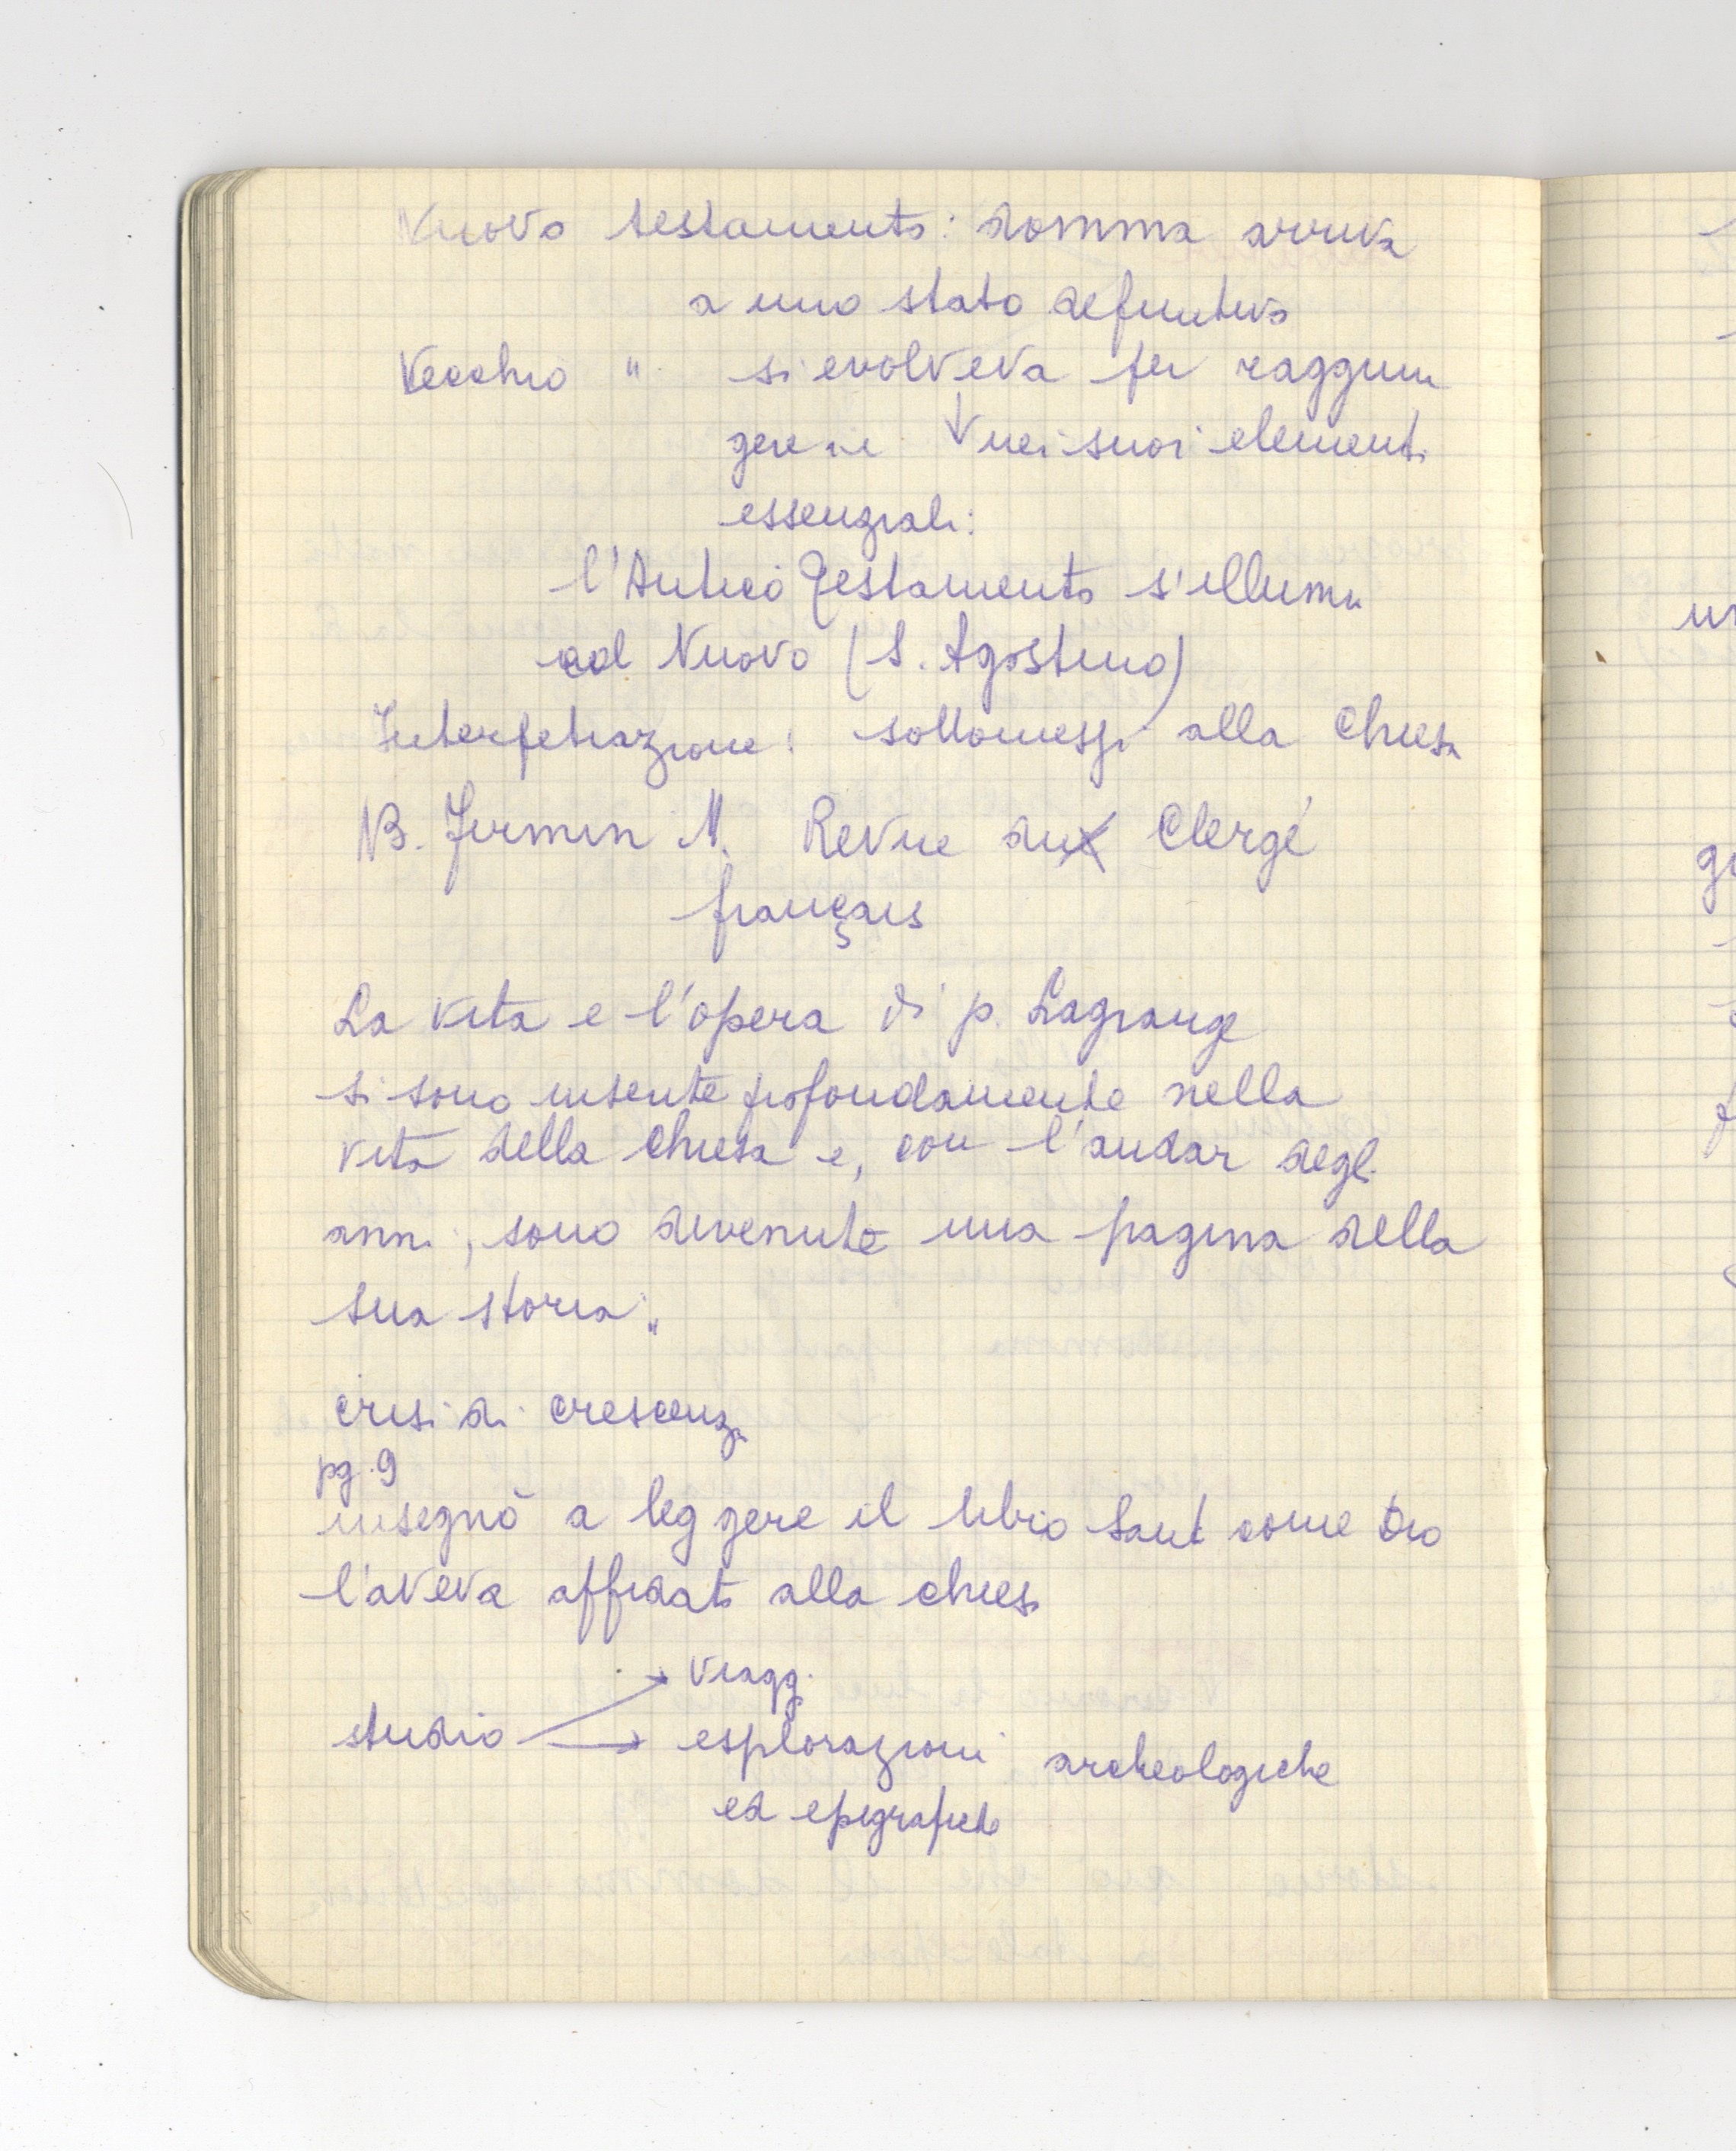 Nuovo testamento: domma arriva
a uno stato definitivo
Vecchio " si evolveva per raggiun
gere ne ↓ nei suoi elementi
essenziali:
l'Antico Testamento s'illumi
col Nuovo (S. Agostino)
Interpetrazione: sottomessi alla Chiesa
NB. Firmin N. Revue du Clergé
français
La vita e l'opera di p. Lagrange
si sono inserite profondamente nella
vita della Chiesa e, con l'andar degli
anni, sono divenute una pagina della
sua storia"
crisi di crescenza
pg. 9
insegnò a leggere il libro Sant come Dio
l'aveva affidato alla chiesa
viaggi
studio → esplorazioni archeologiche
ed epigrafiche